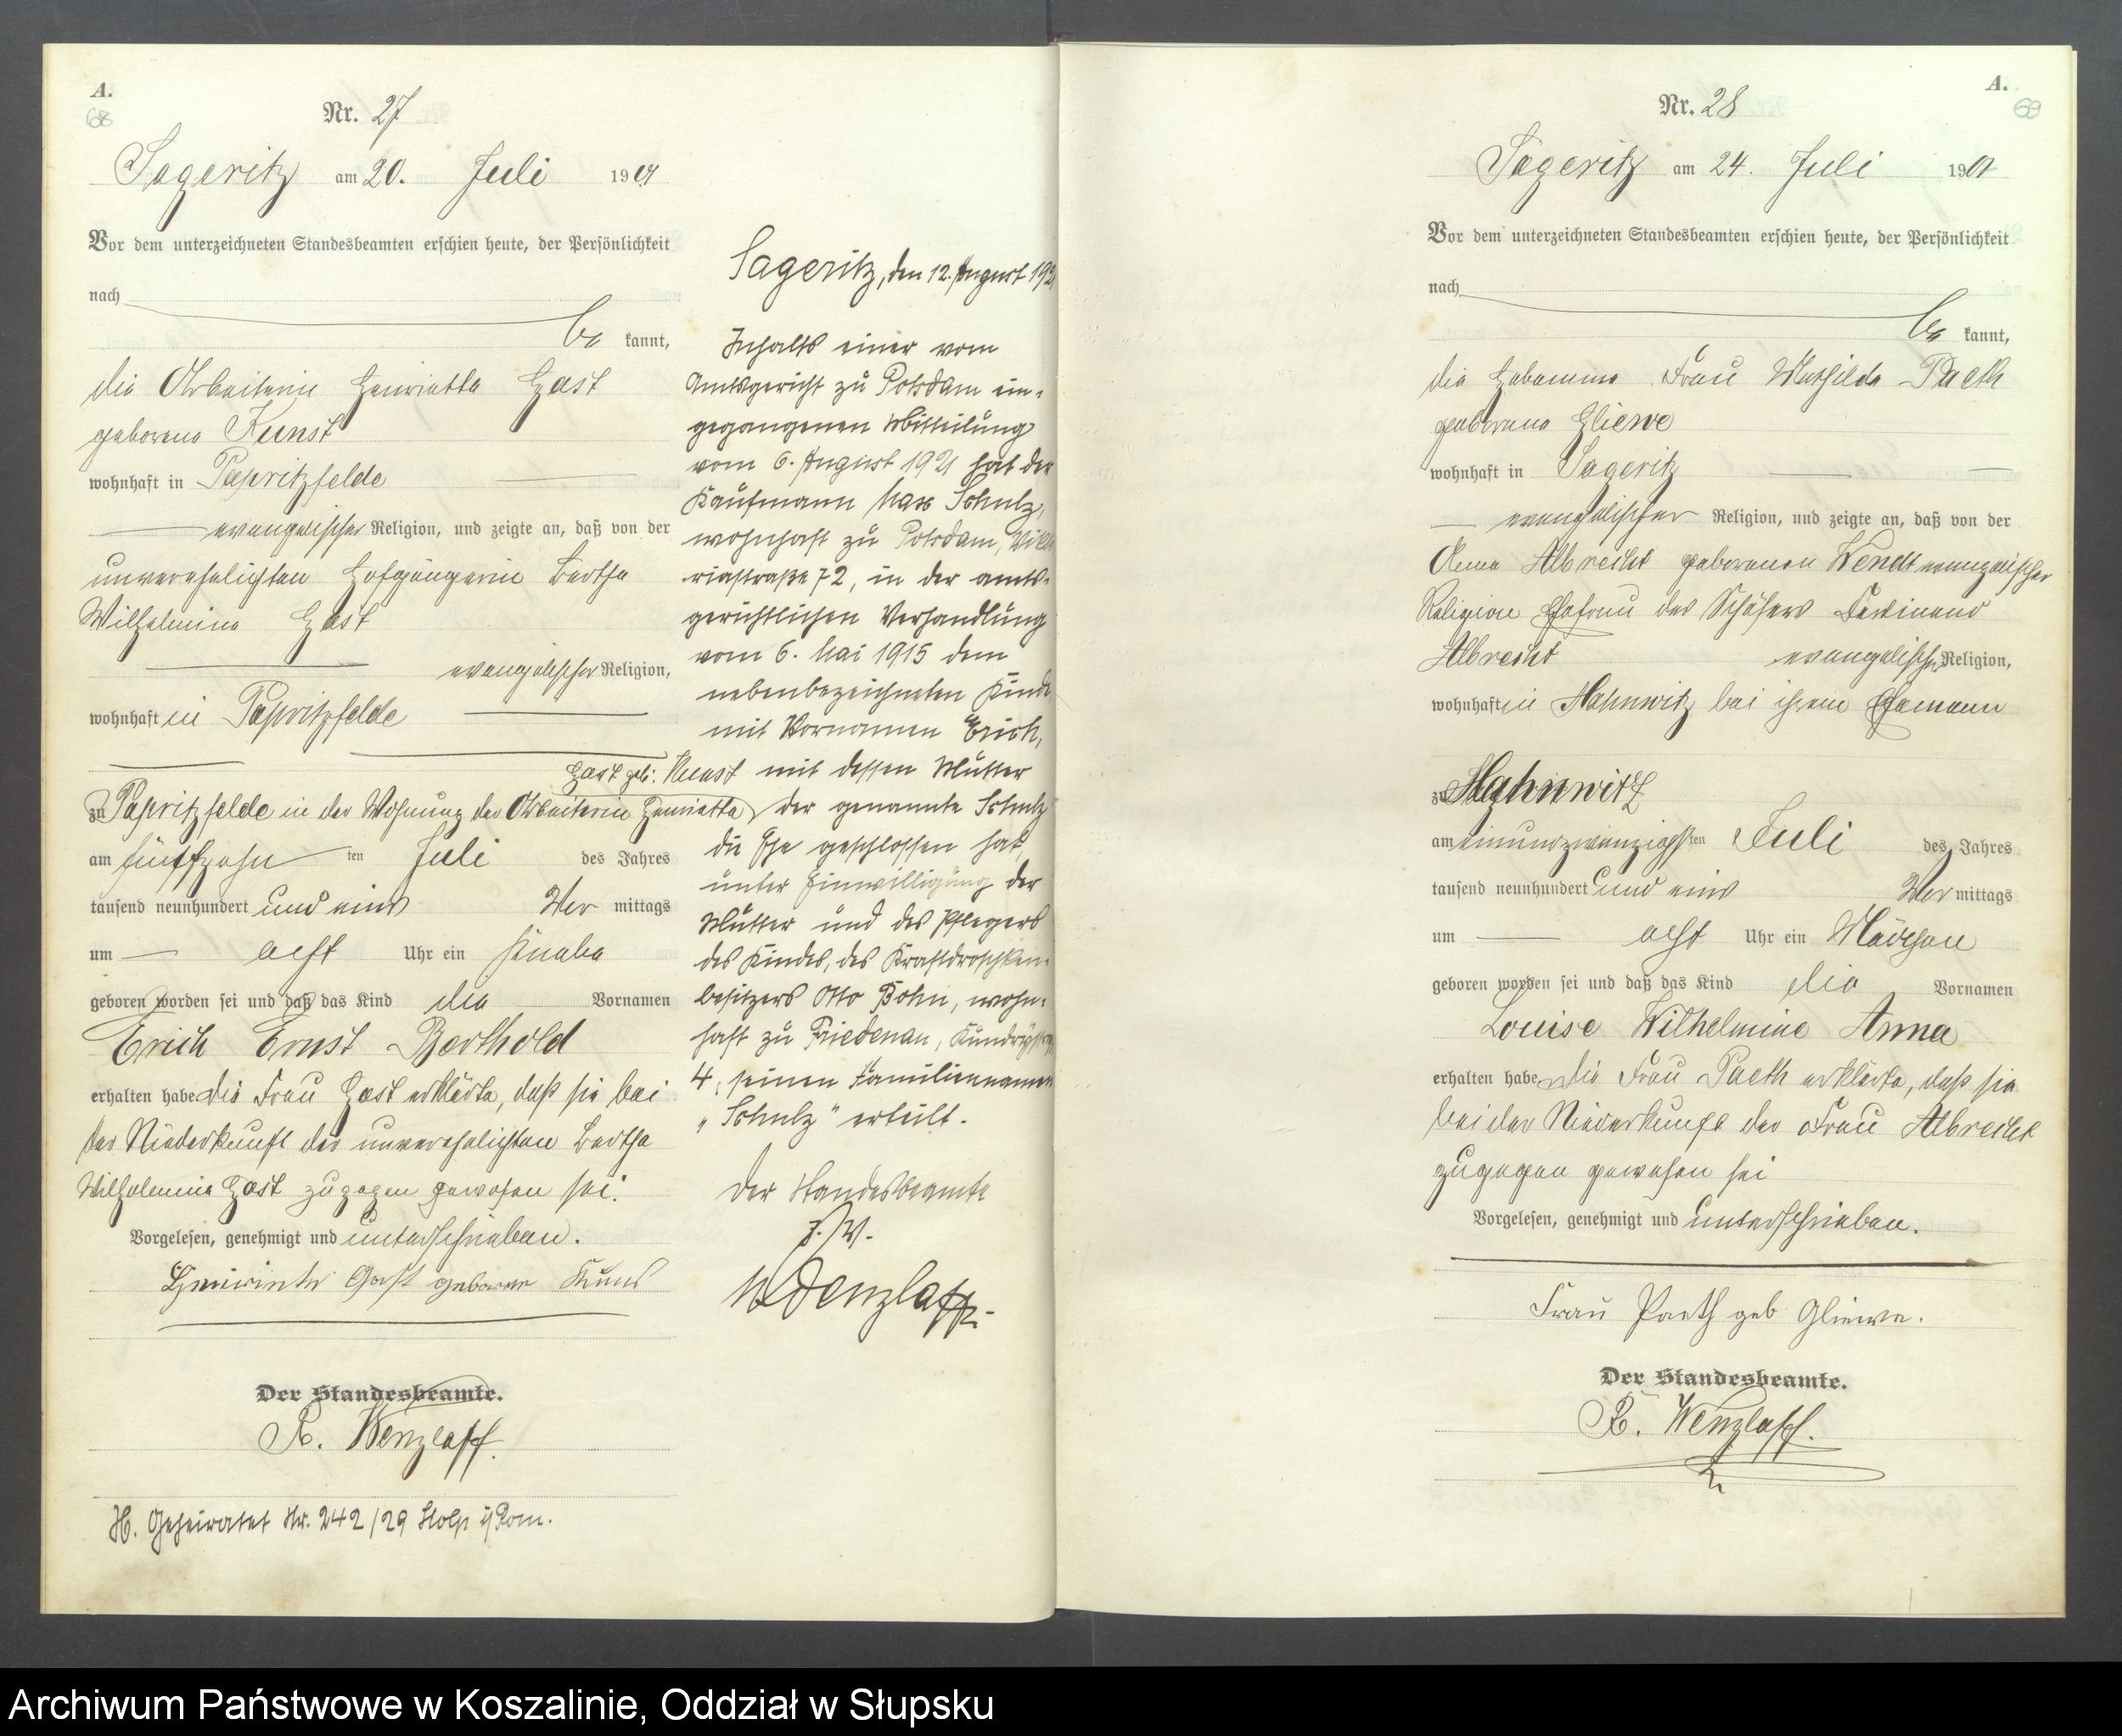 A.
68
Nr. 27
Sageritz am 20. Juli 1901
Vor dem unterzeichneten Standesbeamten erschien heute, der Persönlichkeit
nach
be kannt,
die Arbeiterin Henriette Gast
geborene Kunst
wohnhaft in Papritzfelde
evangelischer Religion, und zeigte an, daß von der
unverehelichten Hofgängerin Bertha
Wilhelmine Gast
evangelischer Religion,
wohnhaft in Papritzfelde
Gast geb. Kunst
zu Papritzfelde in der Wohnung der Arbeiterin Henriette
am fünfzehn ten Juli des Jahres
tausend neunhundert und eins Vor mittags
um acht Uhr ein Knabe
geboren worden sei und daß das Kind die Vornamen
Erich Ernst Berthold
erhalten habe die Frau Gast erklärte, daß sie bei
der Niederkunft der unverehelichten Bertha
Wilhelmine Gast zugegen gewesen sei.
Vorgelesen, genehmigt und unterschrieben.
Henriette Gast geborene Kunst
Der Standesbeamte.
R. Wenzlaff.
H. Geheiratet Nr. 242/29 Stolp i/Pom.
Sageritz, den 12. August 1921
Inhalts einer vom
Amtsgericht zu Potsdam ein-
gegangenen Mitteilung
vom 6. August 1921 hat der
Kaufmann Max Schulz,
wohnhaft zu Potsdam, Vikto
riastraße 72, in der amts-
gerichtlichen Verhandlung
vom 6. Mai 1915 dem
nebenbezeichneten Kinde
mit Vornamen Erich,
mit dessen Mutter
der genannte Schulz
die Ehe geschlossen hat,
unter Einwilligung der
Mutter und des Pflegers
des Kindes, des Kraftdroschken-
besitzers Otto Bohn, wohn-
haft zu Friedenau,
4, seinen Familiennamen
„Schulz" erteilt.
Der Standesbeamte
J. V.
Wenzlaff.
A.
69
Nr. 28
Sageritz am 24. Juli 1901
Vor dem unterzeichneten Standesbeamten erschien heute, der Persönlichkeit
nach
be kannt,
die Hebamme Frau Mathilde Paeth
geborene Gliewe
wohnhaft in Sageritz
evangelischer Religion, und zeigte an, daß von der
Anna Albrecht geborenen Wendt evangelischer
Religion Ehefrau des Schäfers Ferdinand
Albrecht evangelischer Religion,
wohnhaft in Hahnwitz bei ihrem Ehemann
zu Hahnwitz
am einundzwanzigsten Juli des Jahres
tausend neunhundert und eins Vor mittags
um acht Uhr ein Mädchen
geboren worden sei und daß das Kind die Vornamen
Louise Wilhelmine Anna
erhalten habe die Frau Paeth erklärte, daß sie
bei der Niederkunft der Frau Albrecht
zugegen gewesen sei
Vorgelesen, genehmigt und unterschrieben.
Frau Paeth geb Gliewe.
Der Standesbeamte.
R. Wenzlaff.
Archiwum Państwowe w Koszalinie, Oddział w Słupsku